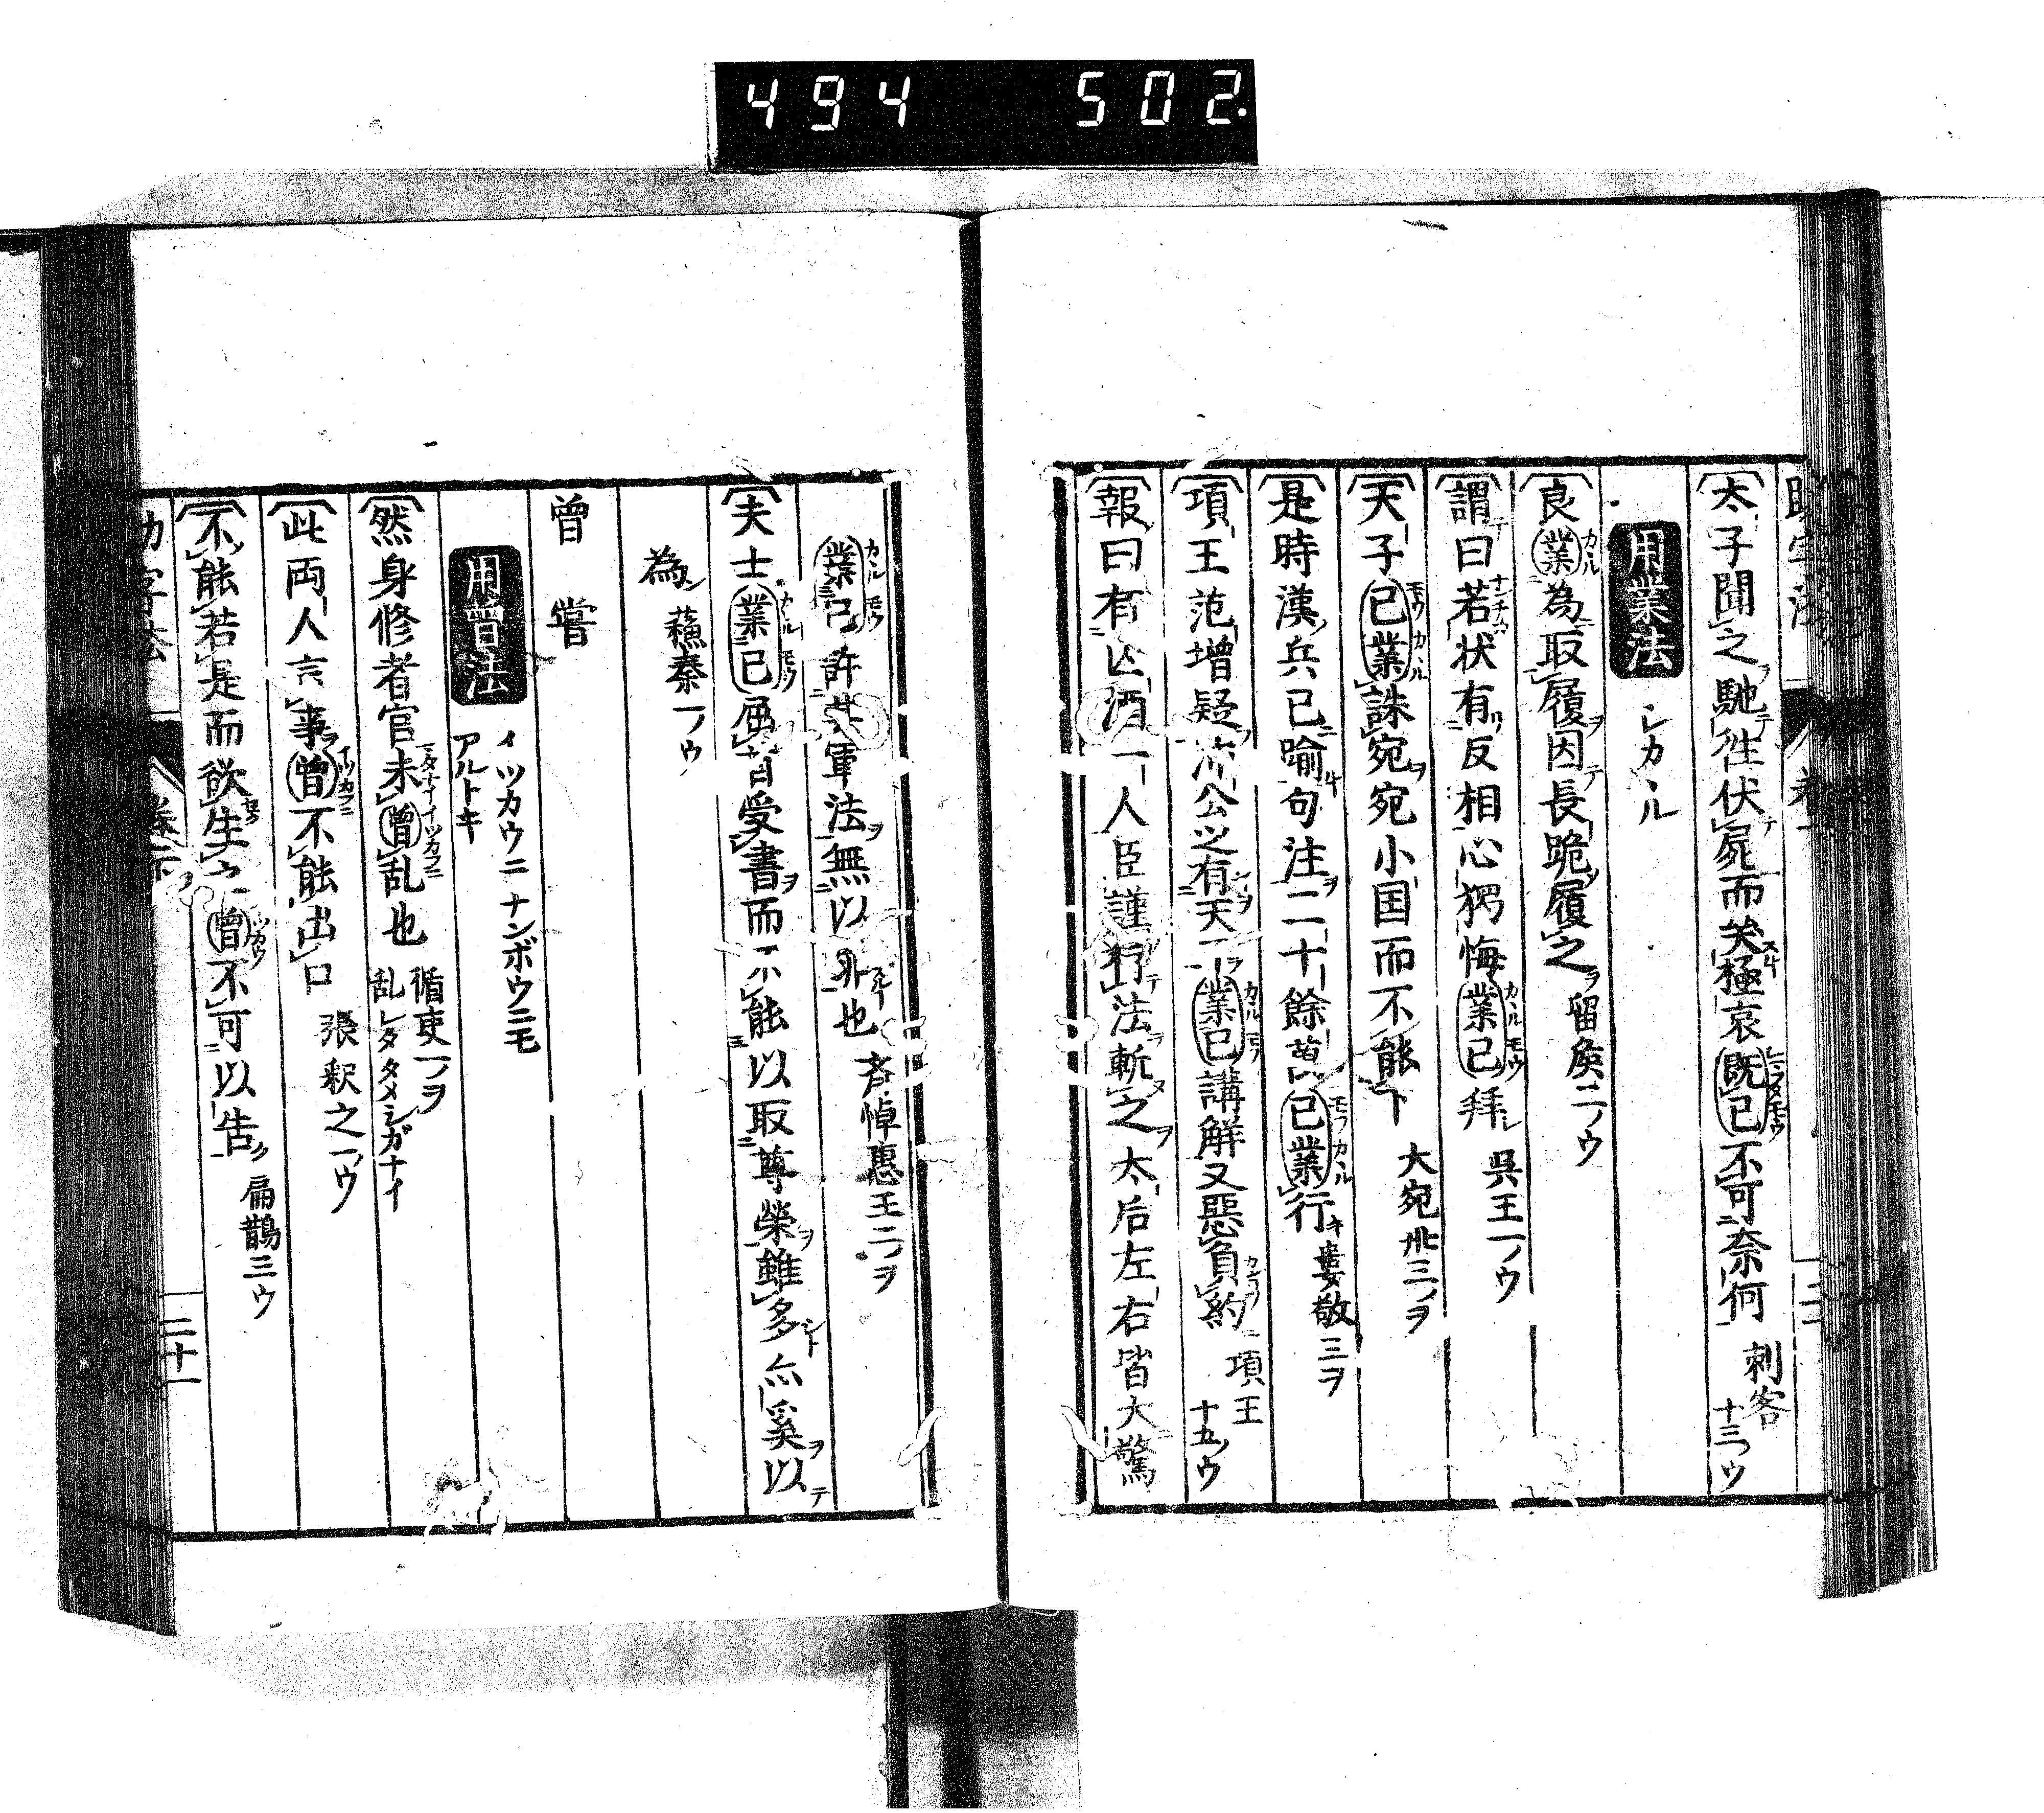 494 502.
太子聞之馳往伏屍而哭極哀既已不可奈何 刺客十三ノウ
用業法 シカヽル
良業為取履因長跪履之 留矦二ノウ
謂曰若状有反相心獨悔業已拜 呉王一ノウ
天子已業誅宛宛小国而不能下 大宛卅三ノヲ
是時漢兵已踰句注二十餘萬已業行 婁敬三ヲ
項王范増疑沛公之有天下業已講解又惡負約 項王十五ノウ
報曰有亡酒一人臣謹行法斬之太后左右皆大驚
業已許其軍法無以罪也 斉悼惠王二ノヲ
夫士業已屈首受書而不能以取尊榮雖多亦奚以
為 蘓秦一ノウ
曽 嘗
用曽法 イツカウニ ナンボウニモ アルトキ
然身修者官未曽乱也 循吏一ノヲ 乱レタタメシガナイ
此両人言事曽不能出口 張釈之一ノウ
不能若是而欲生之曽不可以告 扁鵲三ウ
卷下
二十一